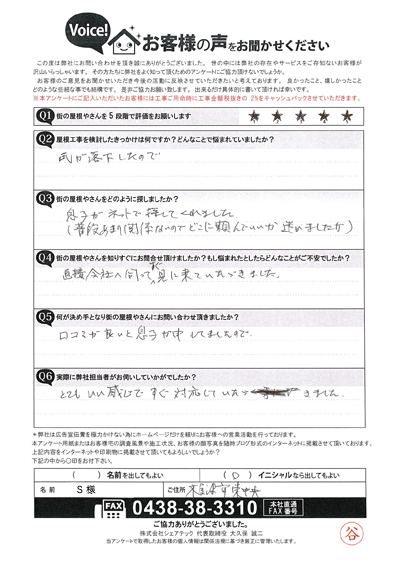 Voice!
お客様の声をお聞かせください
この度は弊社にお問い合わせを頂き誠にありがとうございました。世の中には弊社の存在やサービスをご存知ないお客様が
沢山いらっしゃいます。その方たちに弊社をよく知って頂くためのアンケートにご協力頂けないでしょうか。
お客様のご意見をお聞かせいただき今後の活動に反映させていただきたいと考えております。良かったこと、嬉しかったこと
どのような些細な事でも結構です。是非ご協力お願い致します。出来るだけ具体的に書いて頂ければ幸いです。
※本アンケートにご記入いただいたお客様には工事ご用命時に工事金額税抜きの2%をキャッシュバックさせていただきます。
Q1 街の屋根やさんを5段階で評価をお願いします ★ ★ ★ ★ ★
Q2 屋根工事を検討したきっかけは何ですか?どんなことで悩まれていましたか?
瓦が落下したので
Q3 街の屋根やさんをどのように探しましたか?
息子がネットで探してくれました
(普段あまり関係ないのでどこに頼んでいいか迷いましたが)
Q4 街の屋根やさんを知りすぐにお問合せ頂けましたか?もし悩まれたとしたらどんなことがご不安でしたか?
直接会社へ伺って見に来ていただきました。
Q5 何が決め手となり街の屋根やさんにお問い合わせ頂きましたか?
口コミが良いと息子が申してましたので。
Q6 実際に弊社担当者がお伺いしていかがでしたか?
とてもいい感じですぐ対応していただきました。
*弊社は広告宣伝費を極力かけない為にホームページだけを頼りにお客様への営業活動を行っております。
本アンケート用紙またはお客様宅の調査風景や施工状況、お客様の顔写真を随時ブログ形式のインターネットに掲載させて頂いております。
上記内容をインターネットや印刷物に掲載させて頂いてもよろしいでしょうか?
下記の中から〇印をお付下さい。
( )名前を出してもよい (○)イニシャルなら出してもよい
名前 S様 ご住所 木更津市東中央
FAX 0438-38-3310 本社直通FAX番号
ご協力ありがとうございました。
株式会社シェアテック 代表取締役 大久保 誠二
当アンケートで取得したお客様の個人情報は関係法規に基づき厳正に管理いたします。
谷